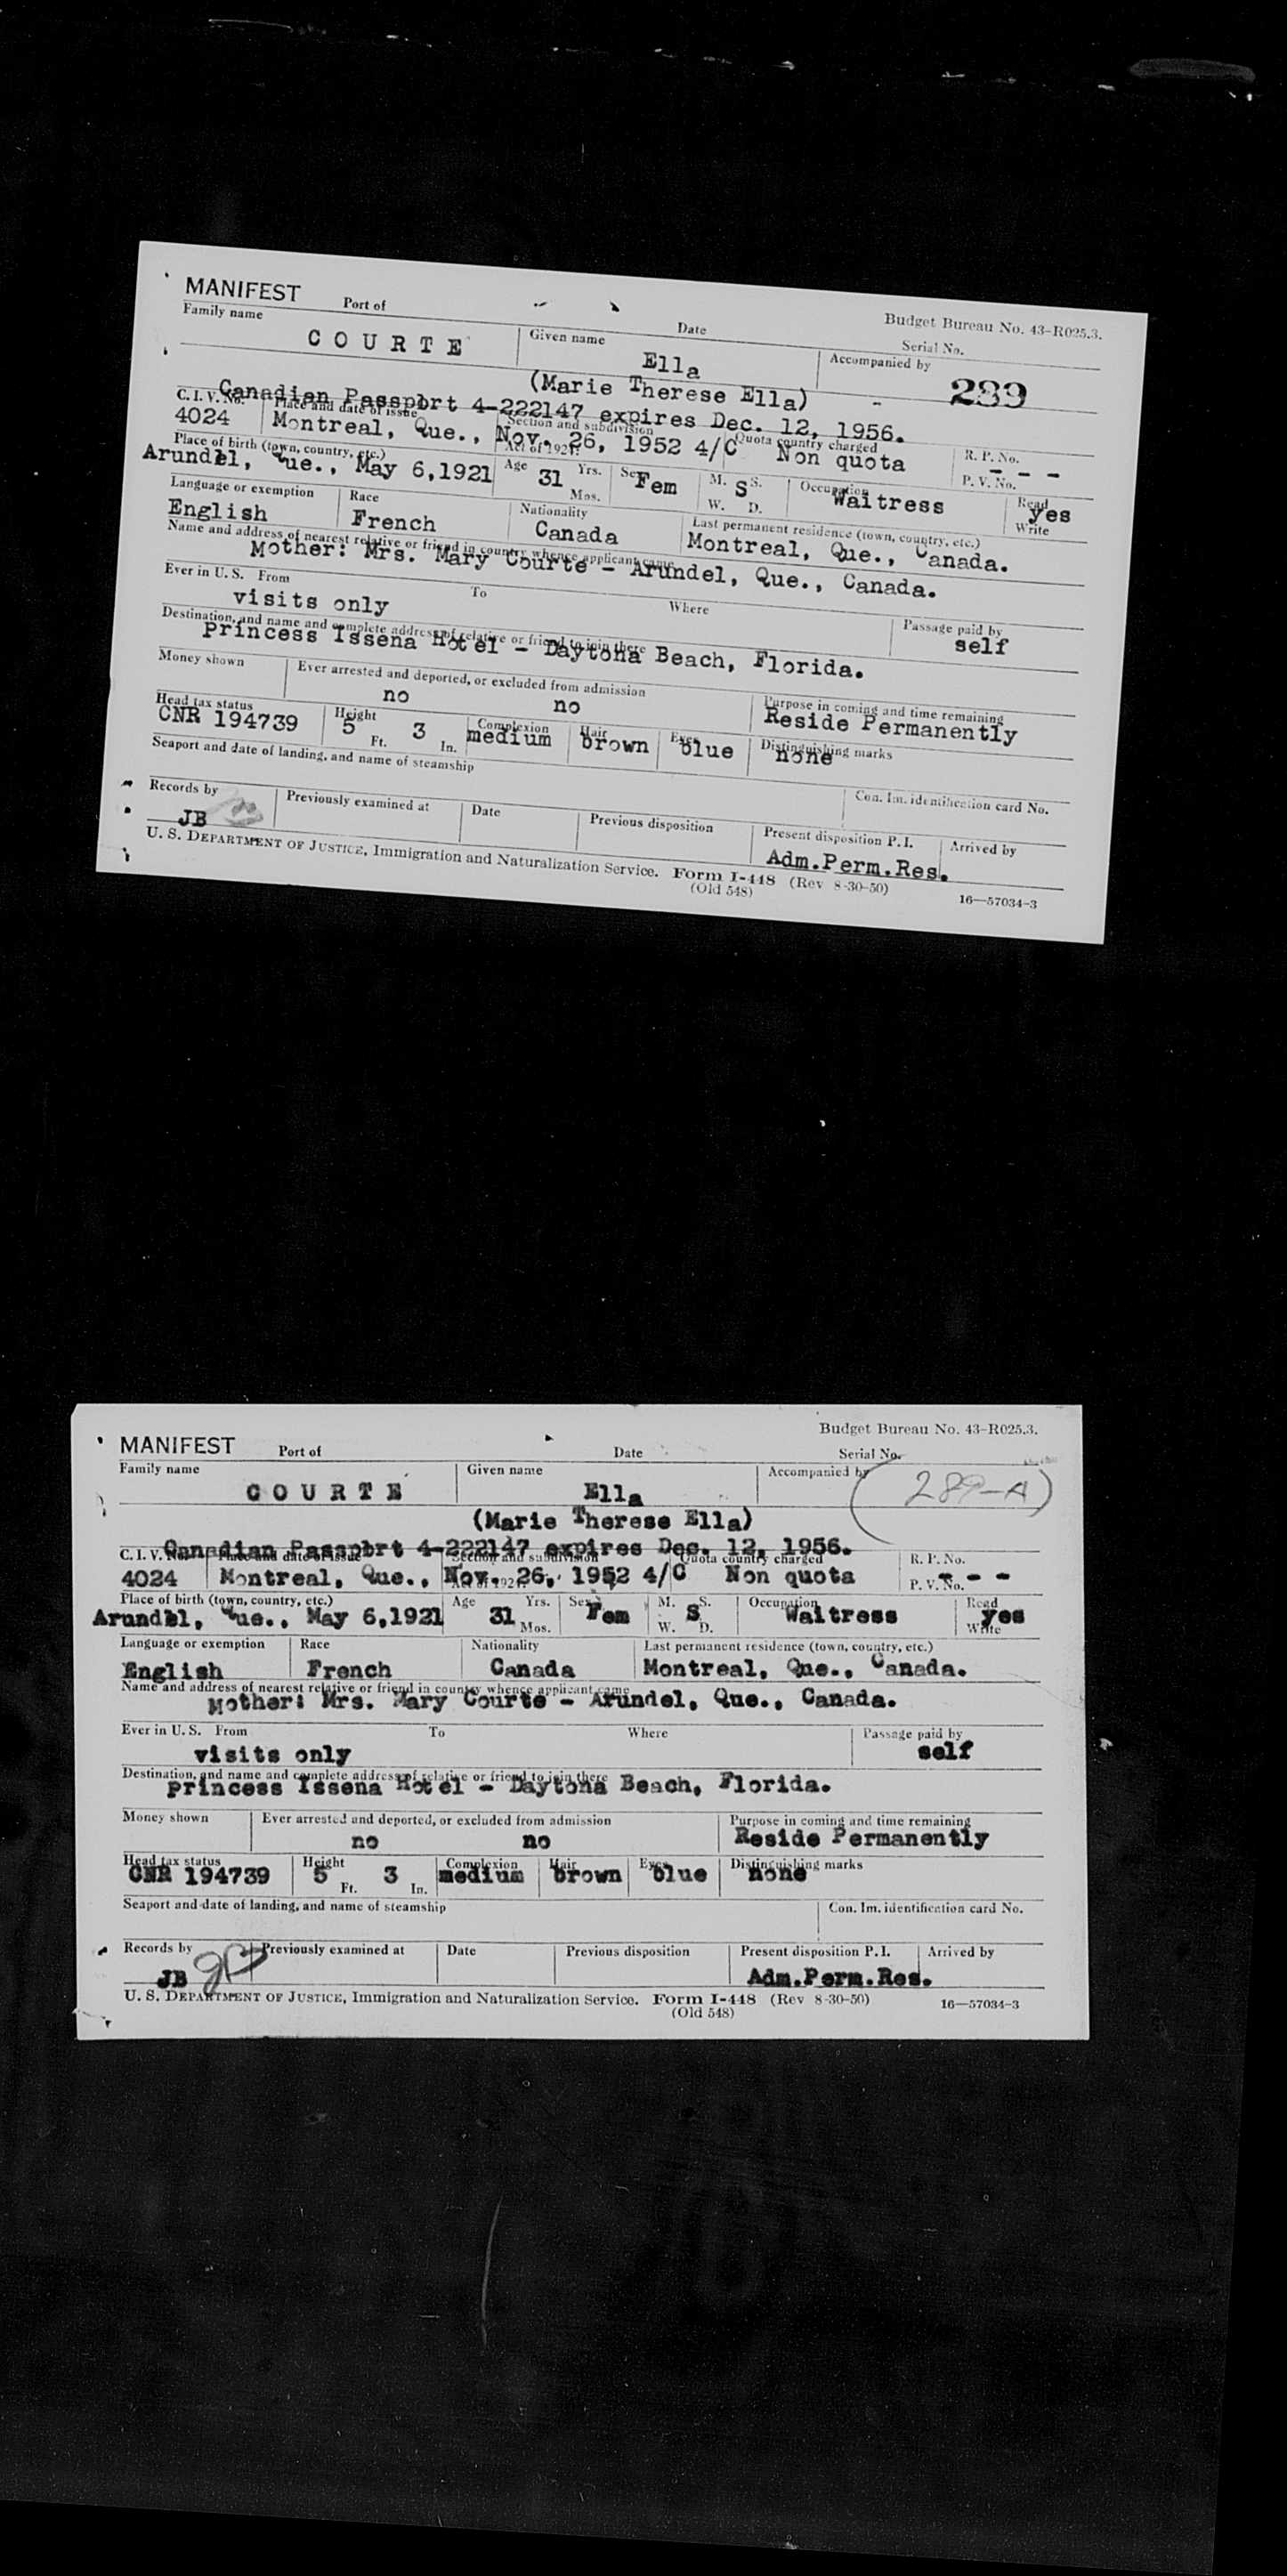 Budget Bureau No. 43-R025.3.
MANIFEST Port of Date Serial No.
Family name Given name Accompanied by
COURTE Ella 289
(Marie Therese Ella) -
Canadian Passport 4-222147 expires Dec. 12, 1956.
C. I. V. No. Place and date of issue Section and subdivision Quota country charged R. P. No.
4024 Montreal, Que., Nov. 26, 1952 4/C Non quota - - -
Act of 1924. P. V. No.
Place of birth (town, country, etc.) Age Yrs. Sex M. S. Occupation Read
Arundel, Que., May 6,1921 31 Fem S Waitress yes
Mos. W. D. Write
Language or exemption Race Nationality Last permanent residence (town, country, etc.)
English French Canada Montreal, Que., Canada.
Name and address of nearest relative or friend in country whence applicant came
Mother: Mrs. Mary Courte - Arundel, Que., Canada.
Ever in U. S. From To Where Passage paid by
visits only self
Destination, and name and complete address of relative or friend to join there
Princess Issena Hotel - Daytona Beach, Florida.
Money shown Ever arrested and deported, or excluded from admission Purpose in coming and time remaining
no no Reside Permanently
Head tax status Height Complexion Hair Eyes Distinguishing marks
CNR 194739 5 Ft. 3 In. medium brown blue none
Seaport and date of landing, and name of steamship Con. Im. identification card No.
Records by Previously examined at Date Previous disposition Present disposition P. I. Arrived by
JB Adm.Perm.Res.
U. S. DEPARTMENT OF JUSTICE, Immigration and Naturalization Service. Form I-448 (Rev 8-30-50) 16—57034-3
(Old 548)
Budget Bureau No. 43-R025.3.
MANIFEST Port of Date Serial No.
Family name Given name Accompanied by
COURTE Ella (289-A)
(Marie Therese Ella)
Canadian Passport 4-222147 expires Dec. 12, 1956.
C. I. V. No. Place and date of issue Section and subdivision Quota country charged R. P. No.
4024 Montreal, Que., Nov. 26, 1952 4/C Non quota - - -
Act of 1924. P. V. No.
Place of birth (town, country, etc.) Age Yrs. Sex M. S. Occupation Read
Arundel, Que., May 6,1921 31 Fem S Waitress yes
Mos. W. D. Write
Language or exemption Race Nationality Last permanent residence (town, country, etc.)
English French Canada Montreal, Que., Canada.
Name and address of nearest relative or friend in country whence applicant came
Mother: Mrs. Mary Courte - Arundel, Que., Canada.
Ever in U. S. From To Where Passage paid by
visits only self
Destination, and name and complete address of relative or friend to join there
Princess Issena Hotel - Daytona Beach, Florida.
Money shown Ever arrested and deported, or excluded from admission Purpose in coming and time remaining
no no Reside Permanently
Head tax status Height Complexion Hair Eyes Distinguishing marks
CNR 194739 5 Ft. 3 In. medium brown blue none
Seaport and date of landing, and name of steamship Con. Im. identification card No.
Records by Previously examined at Date Previous disposition Present disposition P. I. Arrived by
JB Adm.Perm.Res.
U. S. DEPARTMENT OF JUSTICE, Immigration and Naturalization Service. Form I-448 (Rev 8-30-50) 16—57034-3
(Old 548)